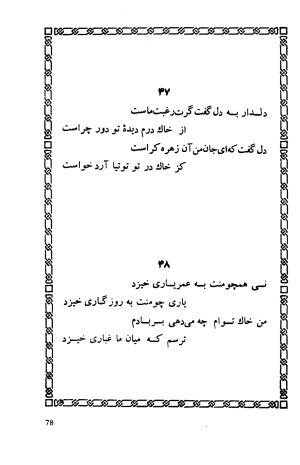 ۴۷
دلدار به دل گفت گرت رغبت ماست
از خاك درم دیدهٔ تو دور چراست
دل گفت که‌ای جان من آن زهره کراست
کز خاك در تو توتیا آرد خواست
۴۸
نی همچو منت به عمر یاری خیزد
یاری چو منت به روزگاری خیزد
من خاك توام چه می‌دهی بر بادم
ترسم که میان ما غباری خیزد
78